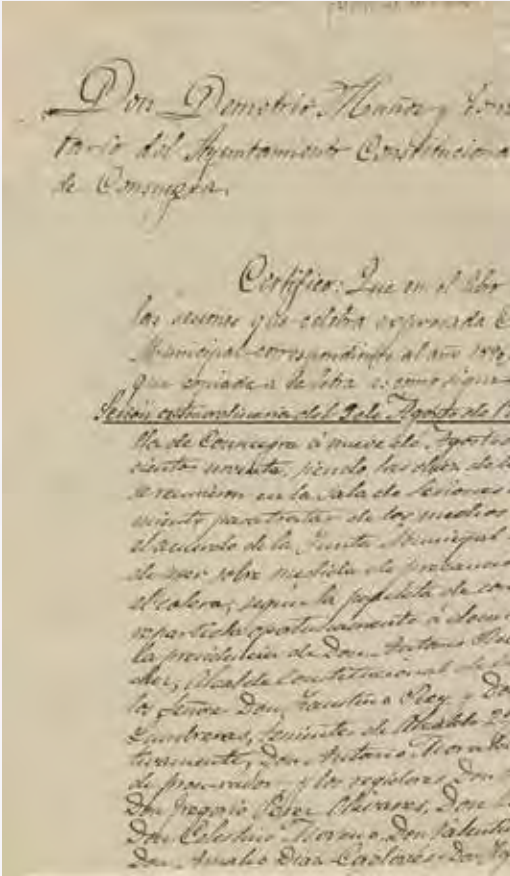 Don Demetrio Muñoz y
tario del Ayuntamiento Constituciona
de Consuegra.
Certifico: Que en el libro
las sesiones que celebra expresada
Municipal correspondiente al año 1890
que copiada a la letra es como sigue
Sesión extraordinaria del 9 de Agosto de
lla de Consuegra á nueve de Agosto
cientos noventa, siendo las diez de la
se reunieron en la Sala de Sesiones
miento para tratar de los medios
el acuerdo de la Junta Municipal
de ayer sobre medida de precaucio
el colera, según la papeleta de con
repartida oportunamente á domi
la presidencia de Don Antonio
Alcalde Constitucional de
los Señores Don Faustino Rey y Do
Lumbreras, teniente de Alcalde 2º
tivamente, Don Antonio Mora
de procurador y los regidores Don
Don Gregorio Perez Olivares, Don
Don Celestino Moreno, Don Valentin
Don Amalio Diaz-Cordovés Don